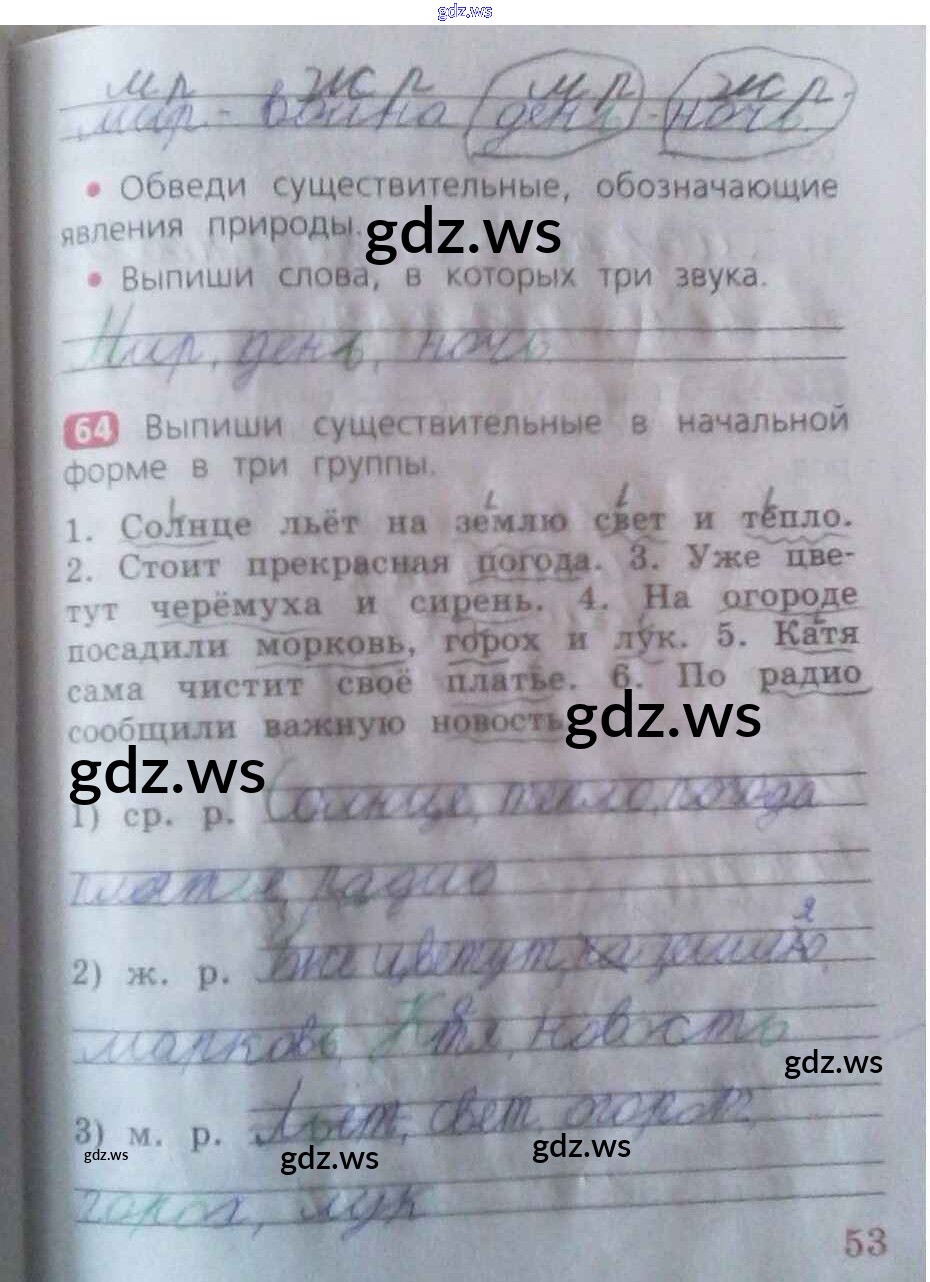 gdz.ws
м р ж р м р ж р.
мир - война день - ночь.
• Обведи существительные, обозначающие
явления природы.
gdz.ws
• Выпиши слова, в которых три звука.
Мир, день, ночь
64 Выпиши существительные в начальной
форме в три группы.
1. Солнце льёт на землю свет и тепло.
2. Стоит прекрасная погода. 3. Уже цве-
тут черёмуха и сирень. 4. На огороде
посадили морковь, горох и лук. 5. Катя
сама чистит своё платье. 6. По радио
сообщили важную новость
gdz.ws
gdz.ws
1) ср. р. Солнце, тепло, погода
платье, радио
я
2) ж. р. Уже цветут, на землю,
марковь Катя, новость
gdz.ws
3) м. р. Льёт, свет, огород,
gdz.ws
gdz.ws
gdz.ws
горох, лук
53